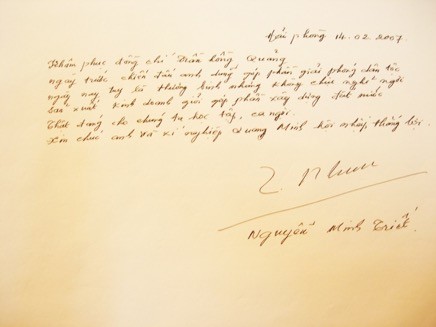 Hải phòng 14.02.2007
Khâm phục đồng chí Trần Hồng Quảng
ngày trước chiến đấu anh dũng góp phần giải phóng dân tộc
ngày nay tuy là thương binh nhưng không chịu nghỉ ngơi
sản xuất kinh doanh giỏi góp phần xây dựng đất nước
Thật đáng cho chúng ta học tập, ca ngợi.
Xin chúc anh và xí nghiệp Quang Minh hội nhập thắng lợi.
Nguyễn Minh Triết